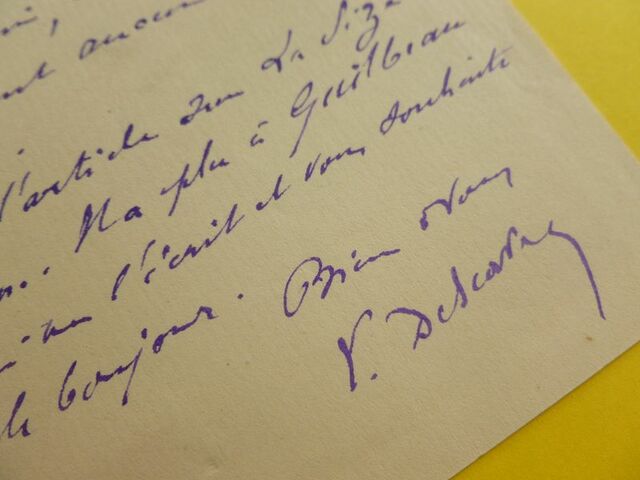 l'article sur La Size
. Il a plu à Guilbeau
l'écrit et vous souhaite
le bonjour. Bien à vous
V. Descaves